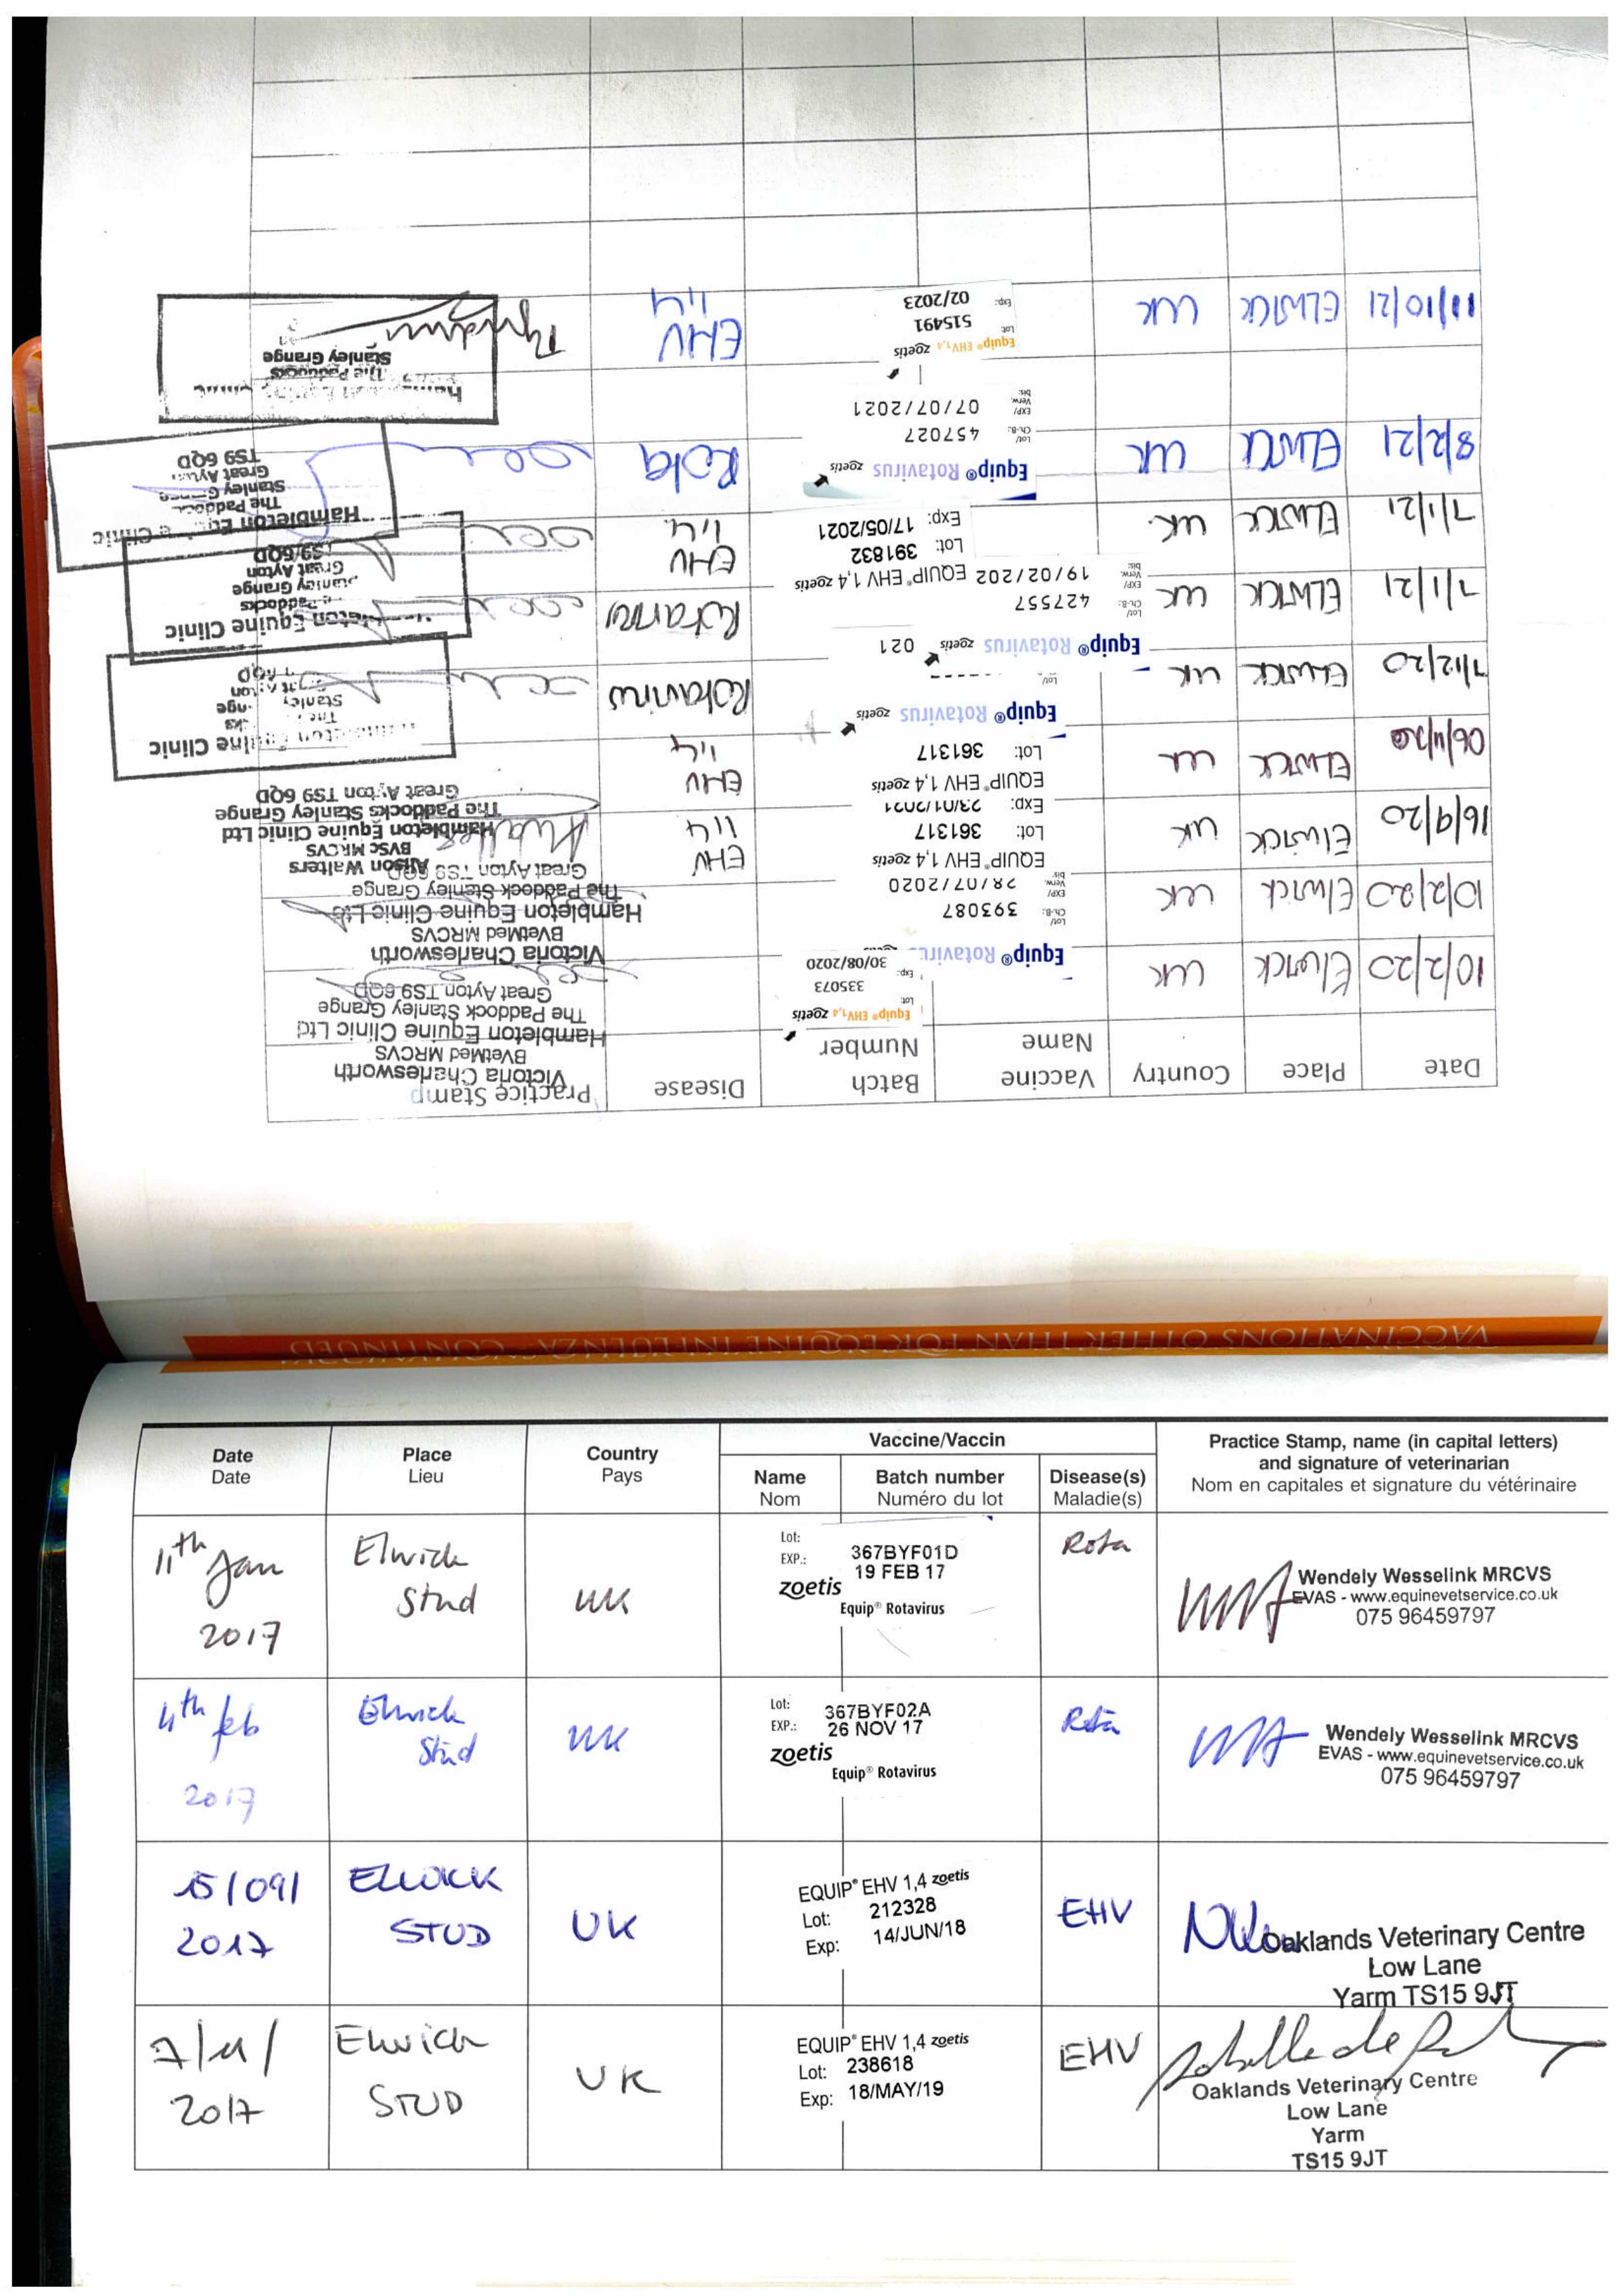 Date Place Country Vaccine Name Batch Number Disease Practice Stamp
10/2/20 Elwick UK Equip® EHV 1,4 zoetis
Lot 335073
Exp: 30/08/2020
Victoria Charlesworth
BVetMed MRCVS
Hambleton Equine Clinic Ltd
The Paddock Stanley Grange
Great Ayton TS9 6QD
10/2/20 Elwick UK Equip® Rotavirus
Lot/ Ch.-B.: 393087
EXP/ Verw. bis: 28/07/2020
Victoria Charlesworth
BVetMed MRCVS
Hambleton Equine Clinic Ltd
The Paddock Stanley Grange
Great Ayton TS9 6QD
16/9/20 Elwick UK EQUIP® EHV 1,4 zoetis
Lot: 361317
Exp: 23/01/2021
EHV 1,4
Alison Walters
BVSc MRCVS
Hambleton Equine Clinic Ltd
The Paddocks Stanley Grange
Great Ayton TS9 6QD
06/11/20 Elwick UK EQUIP® EHV 1,4 zoetis
Lot: 361317
EHV 1,4
7/12/20 ELWICK UK Equip® Rotavirus zoetis
Lot/
Rotavirus
Equine Clinic
Stanley
7/1/21 ELWICK UK Equip® Rotavirus zoetis 021
Lot/ Ch.-B.: 427557
EXP/ Verw. bis: 19/02/202
Rotavirus
Equine Clinic
Paddocks
Stanley Grange
Great Ayton
TS9 6QD
7/1/21 ELWICK UK. EQUIP® EHV 1,4 zoetis
Lot: 391832
Exp: 17/05/2021
EHV 1,4.
8/2/21 ELWICK UK Equip® Rotavirus zoetis
Lot/ Ch.-B.: 457027
EXP/ Verw. bis: 07/07/2021
Rota
Hambleton Equine Clinic
The Paddock
Stanley Grange
Great Ayton
TS9 6QD
11/10/21 ELWICK UK Equip® EHV 1,4 zoetis
Lot 515491
Exp: 02/2023
EHV 1,4
The Paddocks
Stanley Grange
VACCINATIONS OTHER THAN FOR EQUINE INFLUENZA - CONTINUED
Vaccine/Vaccin
Date Place Country Name Batch number Disease(s) Practice Stamp, name (in capital letters)
and signature of veterinarian
Date Lieu Pays Nom Numéro du lot Maladie(s) Nom en capitales et signature du vétérinaire
11th Jan 2017 Elwick Stud UK
Lot: 367BYF01D
EXP.: 19 FEB 17
zoetis
Equip® Rotavirus
Rota
Wendely Wesselink MRCVS
EVAS - www.equinevetservice.co.uk
075 96459797
4th feb 2017 Elwick Stud UK
Lot: 367BYF02A
EXP.: 26 NOV 17
zoetis
Equip® Rotavirus
Rota
Wendely Wesselink MRCVS
EVAS - www.equinevetservice.co.uk
075 96459797
15/09/ 2017 ELWICK STUD UK
EQUIP® EHV 1,4 zoetis
Lot: 212328
Exp: 14/JUN/18
EHV
Oaklands Veterinary Centre
Low Lane
Yarm TS15 9JT
7/11/ 2017 Elwick STUD UK
EQUIP® EHV 1,4 zoetis
Lot: 238618
Exp: 18/MAY/19
EHV
Oaklands Veterinary Centre
Low Lane
Yarm
TS15 9JT